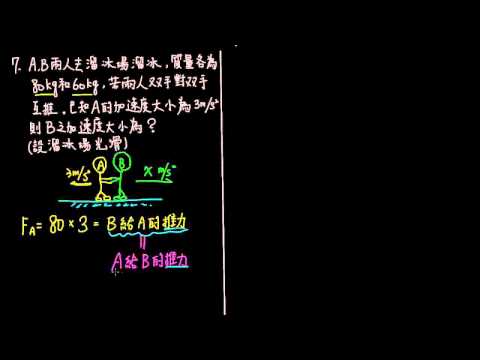 7. A.B兩人去溜冰場溜冰,質量各為
80kg和60kg,若兩人双手對双手
互推,已知A的加速度大小為3m/s²
則B之加速度大小為?
(設溜冰場光滑)
3m/s² A B x m/s²
F_A = 80 × 3 = B給A的推力
||
A給B的推力